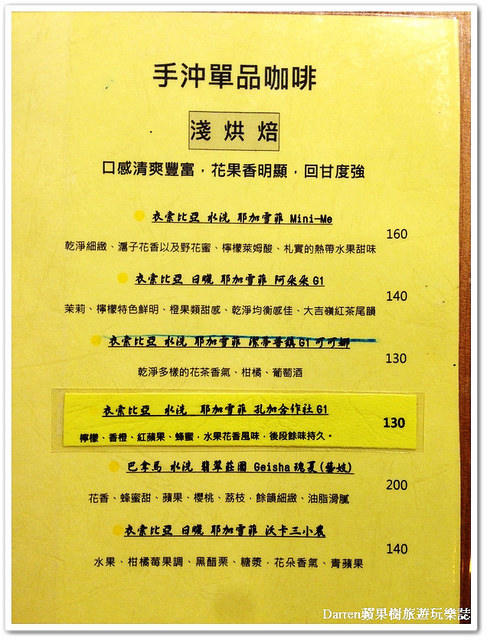 手沖單品咖啡
淺烘焙
口感清爽豐富，花果香明顯，回甘度強
衣索比亞 水洗 耶加雪菲 Mini-Me
160
乾淨細緻、湯子花香以及野花蜜、檸檬萊姆酸、札實的熱帶水果甜味
衣索比亞 日曬 耶加雪菲 阿朵朵 G1
140
茉莉、檸檬特色鮮明、橙果類甜感、乾淨均衡感佳、大吉嶺紅茶尾韻
衣索比亞 水洗 耶加雪菲 潔蒂普鎮 G1 可可娜
130
乾淨多樣的花茶香氣、柑橘、葡萄酒
衣索比亞 水洗 耶加雪菲 孔加合作社 G1
130
檸檬、香橙、紅蘋果、蜂蜜，水果花香風味，後段餘味持久。
巴拿馬 水洗 翡翠莊園 Geisha 瑰夏(藝妓)
200
花香、蜂蜜甜、蘋果、櫻桃、荔枝，餘韻細緻、油脂滑膩
衣索比亞 日曬 耶加雪菲 沃卡三小農
140
水果、柑橘莓果調、黑醋栗、糖漿，花朵香氣、青蘋果
Darren蘋果樹旅遊玩樂誌